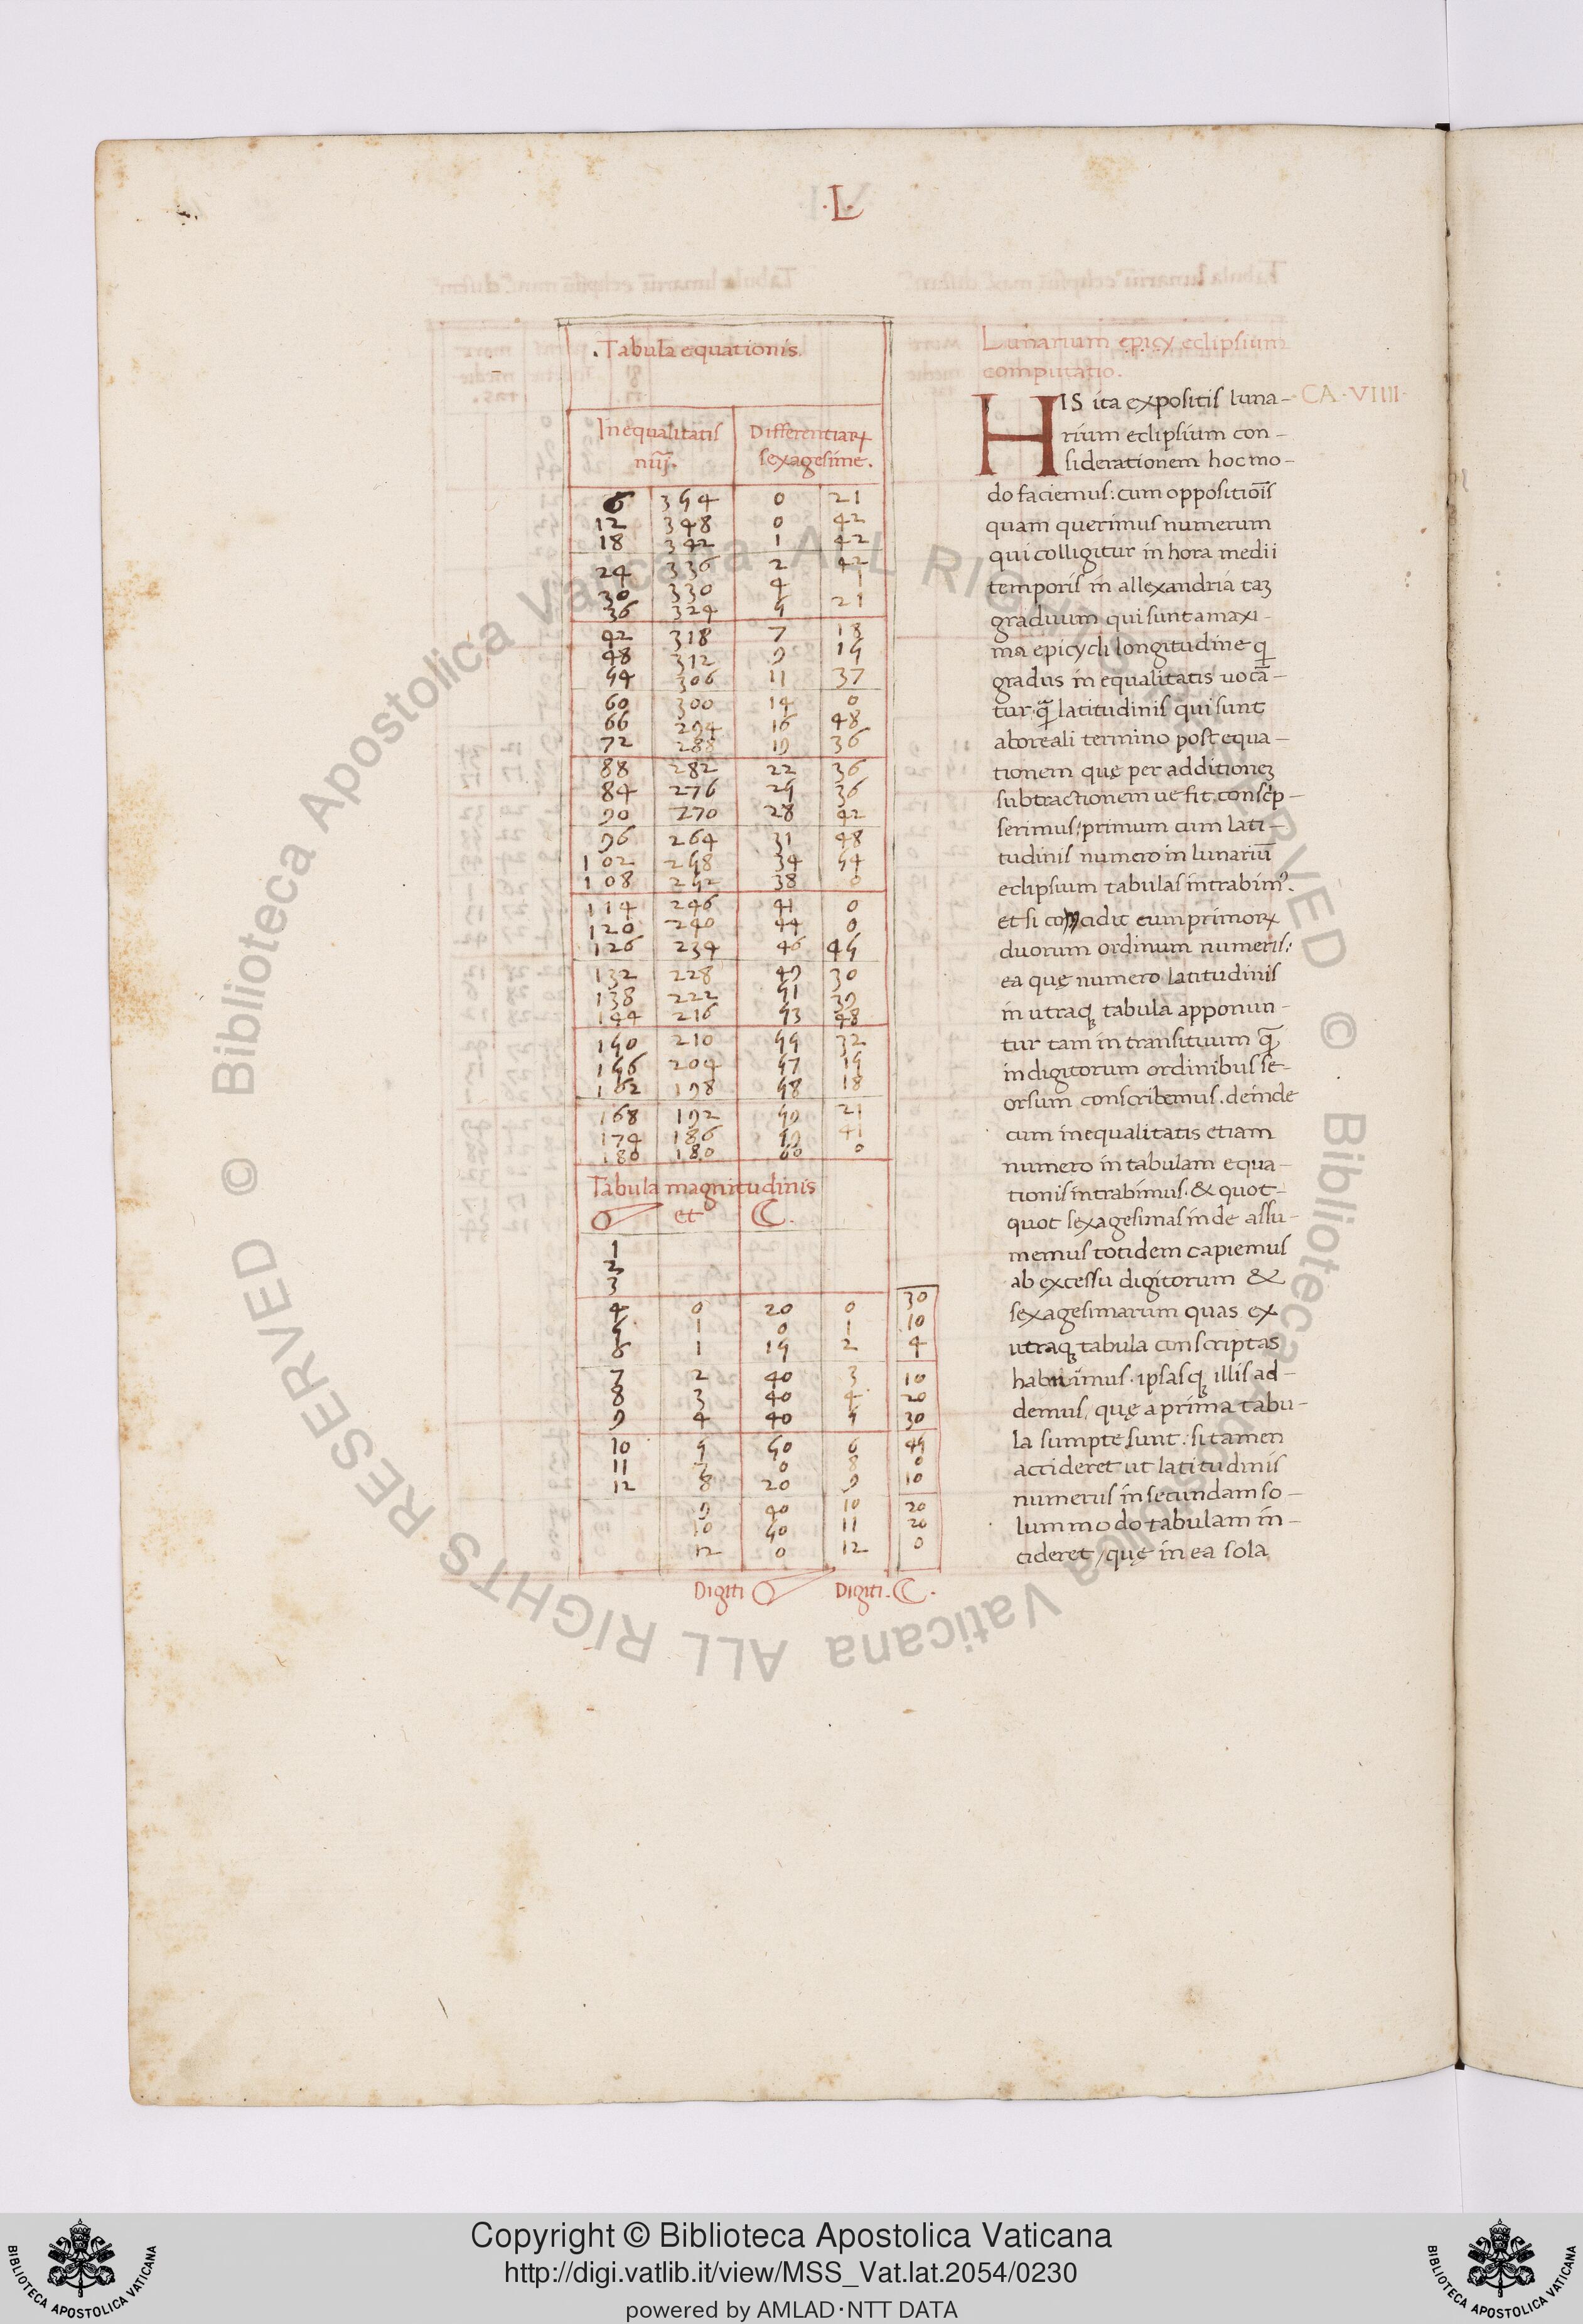 ·L·
.Tabula equationis.
Inequalitatis Differentiaꝝ
nūj. sexagesime.
6 354 0 21
12 348 0 42
18 342 1 42
24 336 2 42
30 330 4 1
36 324 5 21
42 318 7 18
48 312 9 15
54 306 11 37
60 300 14 0
66 294 16 48
72 288 19 36
88 282 22 36
84 276 25 36
90 270 28 42
96 264 31 48
102 258 34 54
108 252 38 0
114 246 41 0
120 240 44 0
126 234 46 45
132 228 49 30
138 222 51 39
144 216 53 48
150 210 55 32
156 204 57 15
162 198 58 18
168 192 59 21
174 186 59 41
180 180 60 0
Tabula magnitudinis
et
1
2
3
30
4 0 20 0
5 1 0 1 10
6 1 15 2 4
7 2 40 3 10
8 3 40 4 20
9 4 40 5 30
10 5 50 6 45
11 7 0 8 0
12 8 20 9 10
9 40 10 20
10 50 11 20
12 0 12 0
Digiti Digiti.
Lunarium epicy eclipsium
computatio.
HIS ita expositis luna- CA·VIIII·
rium eclipsium con-
siderationem hoc mo-
do faciemus: cum oppositiōīs
quam querimus numerum
qui colligitur in hora medii
temporis in allexandria taꝫ
graduum qui sunt a maxi-
ma epicycli longitudine q
gradus inequalitatis uocā-
tur· ꝗ̄ latitudinis qui sunt
a boreali termino post equa-
tionem quę per additioneꝫ
subtractionem ue fit. conscrip-
serimus: primum cum lati-
tudinis numero in lunariū
eclipsium tabulas intrabim⁹.
et si concidit cum primoꝝ
duorum ordinum numeris:
ea quę numero latitudinis
in utraqꝫ tabula apponun-
tur tam in transituum ꝗ̄
in digitorum ordinibus se-
orsum conscribemus. deinde
cum inequalitatis etiam
numero in tabulam equa-
tionis intrabimus· & quot-
quot sexagesimas inde assu-
memus totidem capiemus
ab excessu digitorum &
sexagesimarum quas ex
utraqꝫ tabula conscriptas
habuimus· ipsasqꝫ illis ad-
demus, quę a prima tabu-
la sumpte sunt. si tamen
accideret ut latitudinis
numerus in secundam so-
lummodo tabulam in-
cideret, quę in ea sola
© Biblioteca Apostolica Vaticana ALL RIGHTS RESERVED © Biblioteca Apostolica Vaticana ALL RIGHTS RESERVED
BIBLIOTECA APOSTOLICA VATICANA
Copyright © Biblioteca Apostolica Vaticana
http://digi.vatlib.it/view/MSS_Vat.lat.2054/0230
powered by AMLAD·NTT DATA
BIBLIOTECA APOSTOLICA VATICANA